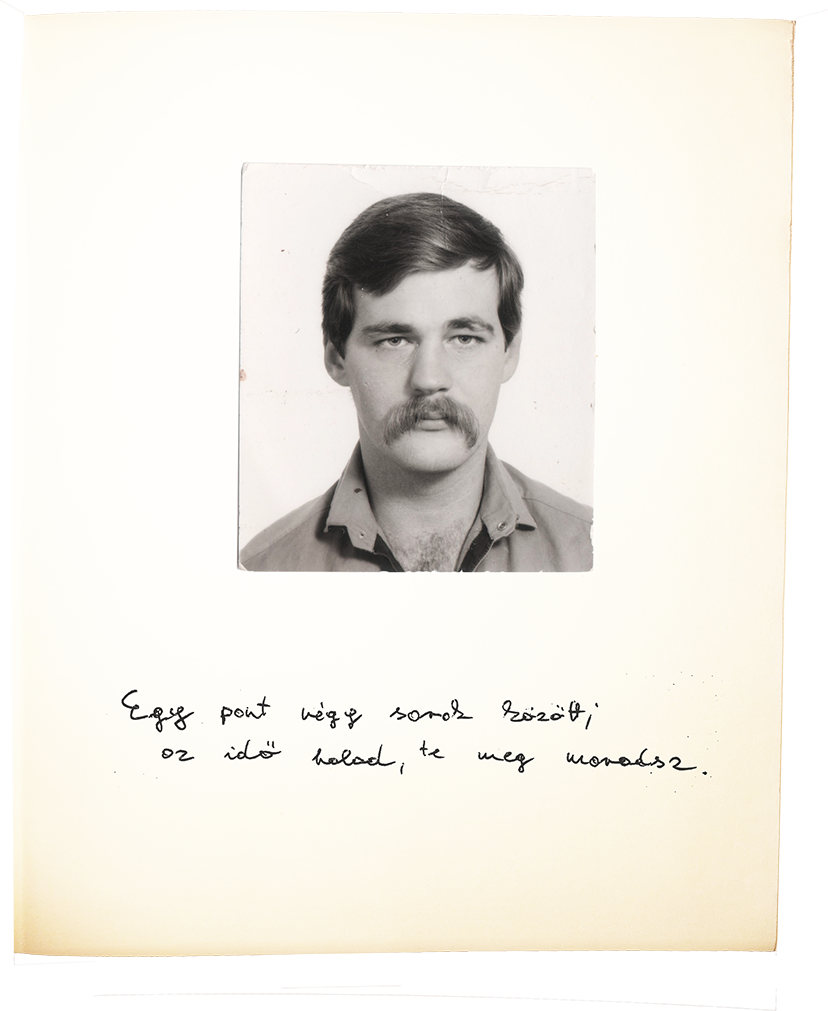 Egy pont vagy sorok között;
az idő halad, te meg maradsz.